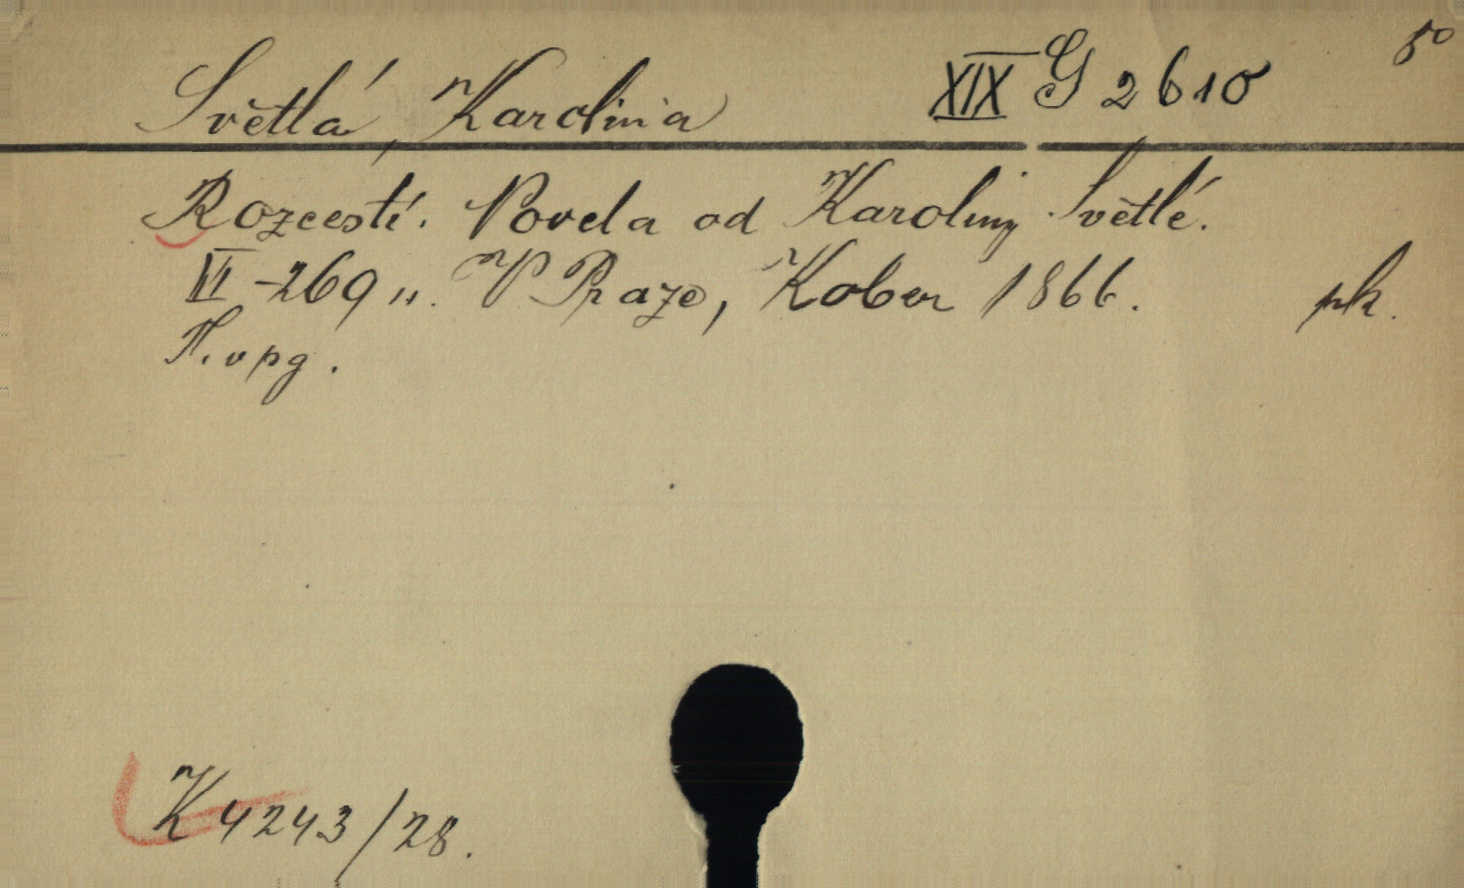 Světlá, Karolina XIX G 2610 8°
Rozcestí. Povela od Karoliny Světlé.
VI-269 ıı. V Praze, Kober 1866. pk.
K 4243/28.